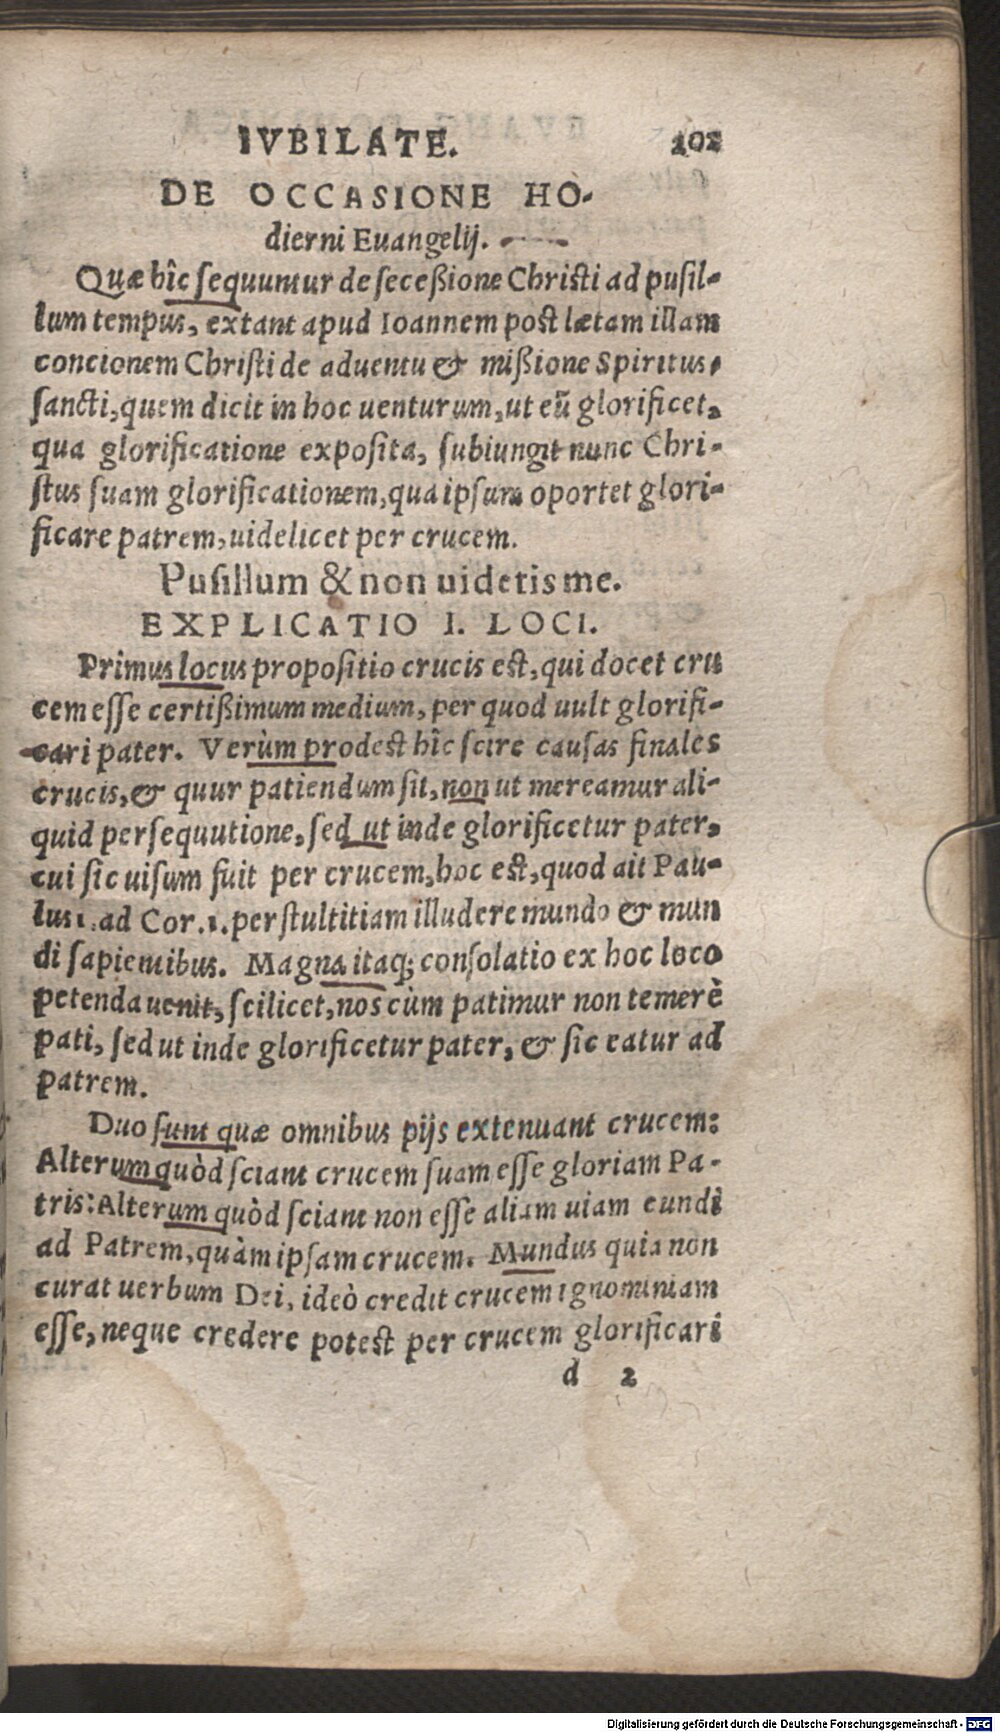 IVBILATE. 102
DE OCCASIONE HO-
dierni Euangelij.
Quæ hîc sequuntur de seceßione Christi ad pusil-
lum tempus, extant apud Ioannem post lætam illam
concionem Christi de aduentu & mißione Spiritus,
sancti, quem dicit in hoc uenturum, ut eũ glorificet,
qua glorificatione exposita, subiungit nunc Chri-
stus suam glorificationem, qua ipsum oportet glori-
ficare patrem, uidelicet per crucem.
Pusillum & non uidetis me.
EXPLICATIO I. LOCI.
Primus locus propositio crucis est, qui docet cru
cem esse certißimum medium, per quod uult glorifi-
cari pater. Verùm prodest hîc scire causas finales
crucis, & quur patiendum sit, non ut mereamur ali-
quid persequutione, sed ut inde glorificetur pater,
cui sic uisum fuit per crucem, hoc est, quod ait Pau-
lus 1. ad Cor. 1. per stultitiam illudere mundo & mun
di sapientibus. Magna itaq; consolatio ex hoc loco
petenda uenit, scilicet, nos cùm patimur non temerè
pati, sed ut inde glorificetur pater, & sic eatur ad
patrem.
Duo sunt quæ omnibus pijs extenuant crucem:
Alterum quòd sciant crucem suam esse gloriam Pa-
tris: Alterum quòd sciant non esse aliam uiam eundi
ad Patrem, quàm ipsam crucem. Mundus quia non
curat uerbum Dei, ideò credit crucem ignominiam
esse, neque credere potest per crucem glorificari
d 2
Digitalisierung gefördert durch die Deutsche Forschungsgemeinschaft - DFG